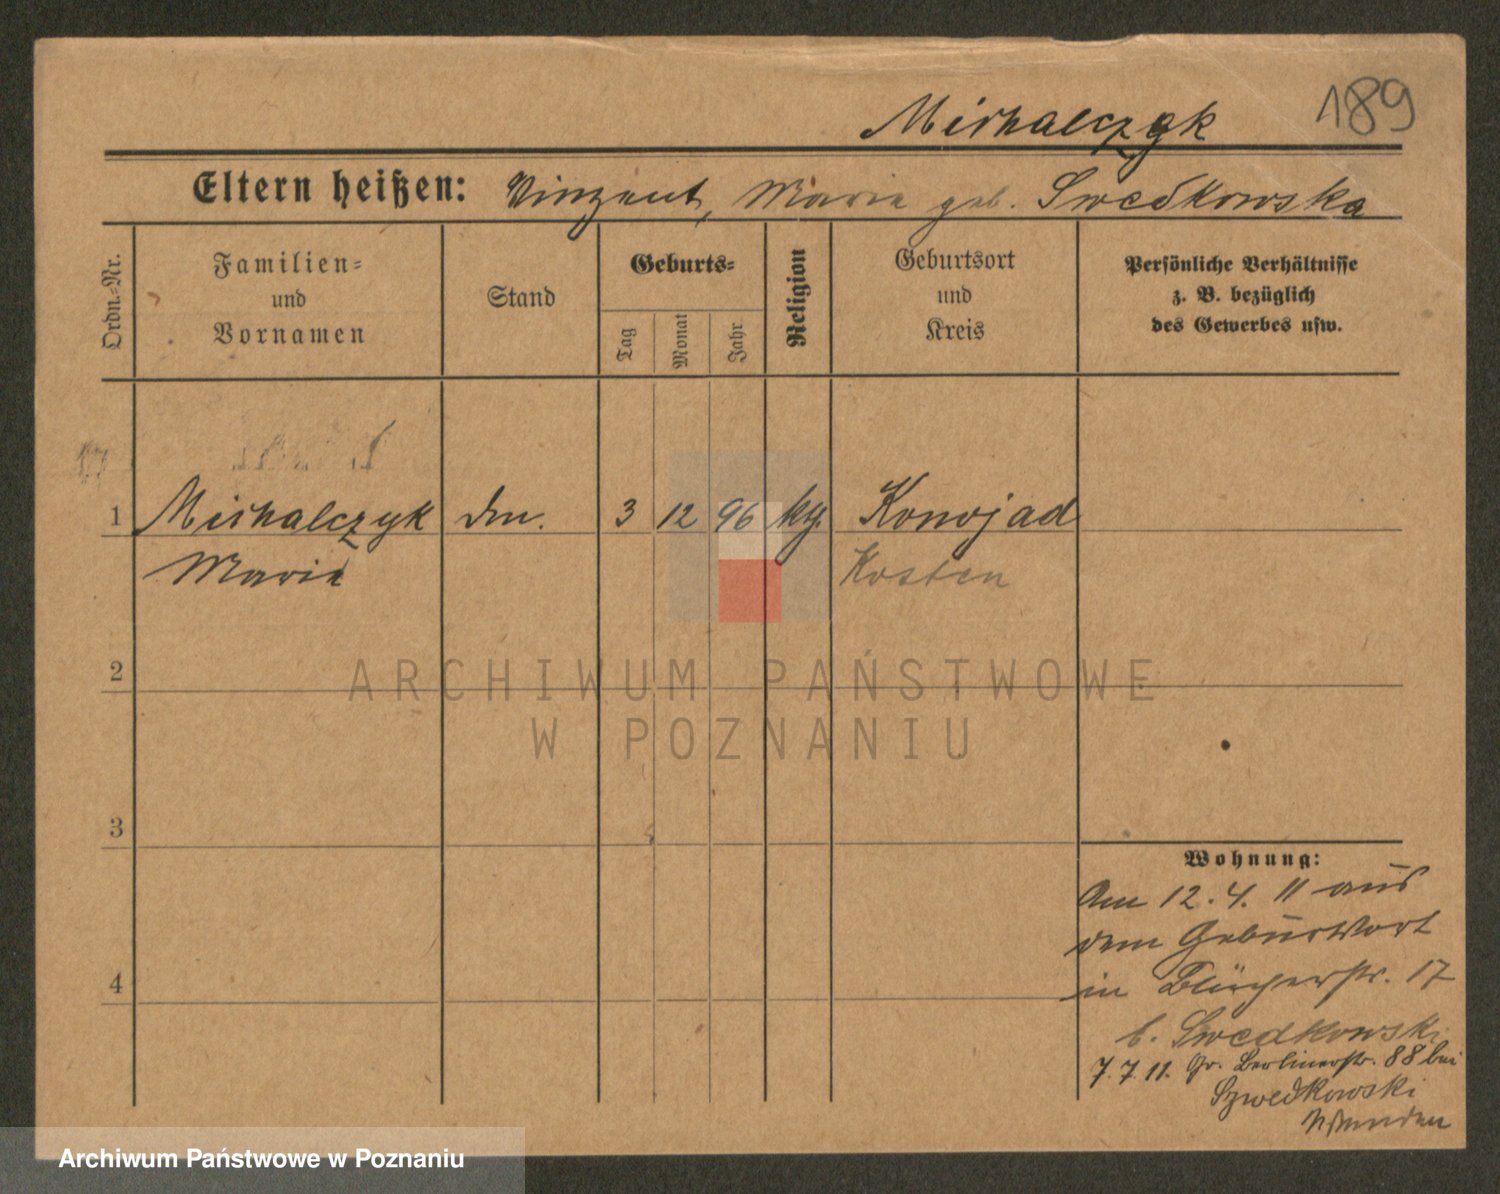 189
Michalczyk
Eltern heißen: Vinzent, Marie geb. Swedkowska
Ordn.-Nr.
Familien-
und
Vornamen
Stand
Geburts-
Tag
Monat
Jahr
Religion
Geburtsort
und
Kreis
Persönliche Verhältnisse
z. B. bezüglich
des Gewerbes usw.
17
1 Michalczyk dm. 3 12 96 kg. Konojad
Marie Kosten
2
ARCHIWUM PAŃSTWOWE
W POZNANIU
3
Wohnung:
Am 12. 4. 11 aus
dem Geburtsort
4
in Blücherstr. 17
b. Swedkowski
7. 7. 11. Gr. Berlinerstr. 88 bei
Szwedkowski
Archiwum Państwowe w Poznaniu